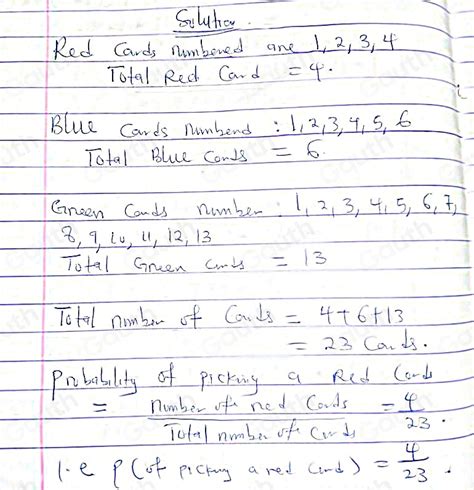 Solution.
Red Cards numbered are 1, 2, 3, 4
Total Red Card = 4.
Blue Cards Numberd : 1, 2, 3, 4, 5, 6
Total Blue Cards = 6.
Green Cards number : 1, 2, 3, 4, 5, 6, 7,
8, 9, 10, 11, 12, 13
Total Green cards = 13
Total number of Cards = 4+6+13
= 23 Cards.
Probability of picking a Red Cards
= number of red Cards / Total number of Cards = 4/23.
i.e P(of picking a red Card) = 4/23.